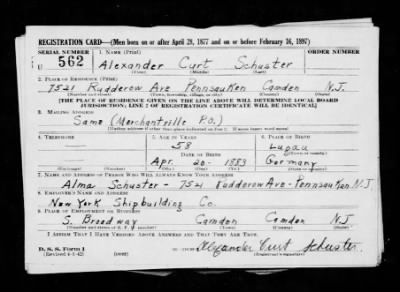 REGISTRATION CARD—(Men born on or after April 28, 1877 and on or before February 16, 1897)
SERIAL NUMBER 1. NAME (Print) ORDER NUMBER
U 562 Alexander Curt Schuster
(First) (Middle) (Last)
2. PLACE OF RESIDENCE (Print)
7521 Rudderow Ave Pennsauken Camden N.J.
(Number and street) (Town, township, village, or city) (County) (State)
[THE PLACE OF RESIDENCE GIVEN ON THE LINE ABOVE WILL DETERMINE LOCAL BOARD
JURISDICTION; LINE 2 OF REGISTRATION CERTIFICATE WILL BE IDENTICAL]
3. MAILING ADDRESS
Same (Merchantville P.O.)
[Mailing address if other than place indicated on line 2. If same insert word same]
4. TELEPHONE 5. AGE IN YEARS 6. PLACE OF BIRTH
58 Lupau
DATE OF BIRTH (Town or county)
Apr. 20 - 1883 Germany
(Exchange) (Number) (Mo.) (Day) (Yr.) (State or country)
7. NAME AND ADDRESS OF PERSON WHO WILL ALWAYS KNOW YOUR ADDRESS
Alma Schuster - 7521 Rudderow Ave - Pennsauken N.J.
8. EMPLOYER'S NAME AND ADDRESS
New York Shipbuilding Co.
9. PLACE OF EMPLOYMENT OR BUSINESS
S. Broadway Camden Camden N.J.
(Number and street or R. F. D. number) (Town) (County) (State)
I AFFIRM THAT I HAVE VERIFIED ABOVE ANSWERS AND THAT THEY ARE TRUE.
D. S. S. Form 1
(Revised 4-1-42) Alexander Curt Schuster